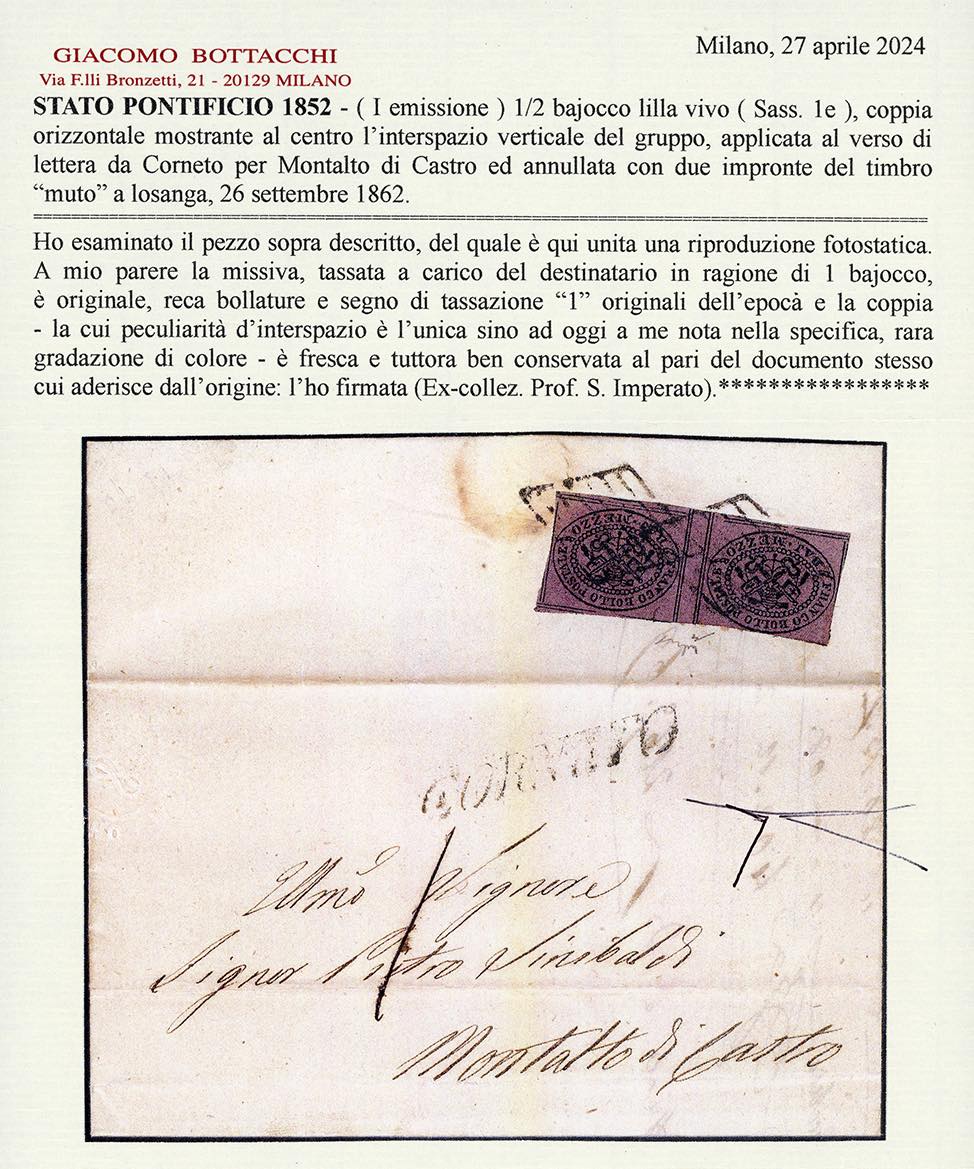 GIACOMO BOTTACCHI
Via F.lli Bronzetti, 21 - 20129 MILANO
Milano, 27 aprile 2024
STATO PONTIFICIO 1852 - ( I emissione ) 1/2 bajocco lilla vivo ( Sass. 1e ), coppia
orizzontale mostrante al centro l'interspazio verticale del gruppo, applicata al verso di
lettera da Corneto per Montalto di Castro ed annullata con due impronte del timbro
“muto” a losanga, 26 settembre 1862.
Ho esaminato il pezzo sopra descritto, del quale è qui unita una riproduzione fotostatica.
A mio parere la missiva, tassata a carico del destinatario in ragione di 1 bajocco,
è originale, reca bollature e segno di tassazione “1” originali dell'epocà e la coppia
- la cui peculiarità d'interspazio è l'unica sino ad oggi a me nota nella specifica, rara
gradazione di colore - è fresca e tuttora ben conservata al pari del documento stesso
cui aderisce dall'origine: l'ho firmata (Ex-collez. Prof. S. Imperato). *****************
FRANCO BOLLO POSTALE BAJ. MEZZO
FRANCO BOLLO POSTALE BAJ. MEZZO
CORNETO
1
Illmo Signore
Signor Pietro Sinibaldi
Montalto di Castro